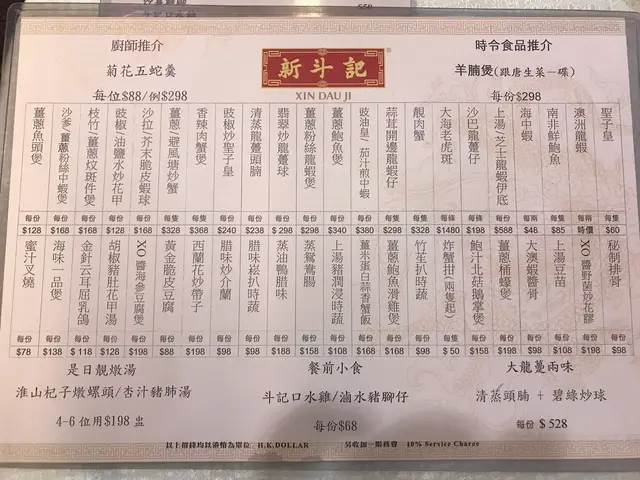 廚師推介
菊花五蛇羹
每位$88/例$298
新斗記
XIN DAU JI
時令食品推介
羊腩煲(跟唐生菜一碟)
每份$298
聖子皇 每隻 $60
澳洲龍蝦 每兩 時價
南非鮮鮑魚 每隻 $85
海中蝦 每兩 $48
上湯/芝士龍蝦伊底 每份 $568
沙巴龍躉仔 每條 $198
大海老虎斑 每條 $1480
靚肉蟹 每隻 $328
蒜茸開邊龍蝦仔 每隻 $298
豉油皇/茄汁煎中蝦 每份 $380
薑蔥鮑魚煲 每份 $340
薑蔥粉絲龍蝦煲 每份 $298
翡翠炒龍躉球 每份 $298
清蒸龍躉頭腩 每份 $238
豉椒炒聖子皇 每份 $240
香辣肉蟹煲 每隻 $368
薑蔥/避風塘炒蟹 每隻 $328
沙拉/芥末脆皮蝦球 每份 $168
豉椒/油鹽水炒花甲 每份 $128
枝竹/薑蔥炆斑件煲 每份 $168
沙爹/薑蔥粉絲中蝦煲 每份 $168
薑蔥魚頭煲 每份 $128
秘制排骨 每份 $98
XO醬野菌炒花膠 每份 $198
上湯豆苗 每份 $98
大澳蝦醬骨 每份 $98
薑蔥桶蠔煲 每份 $198
鮑汁北菇鵝掌煲 每份 $158
炸蟹拑(兩隻起) 每隻 $50
竹笙扒時蔬 每份 $98
薑蔥鮑魚滑雞煲 每份 $168
薑米蛋白蒜香蟹飯 每份 $168
上湯豬潤浸時蔬 每份 $108
蒸鴛鴦腸 每份 $98
蒸油鴨腊味 每份 $288
腊味崧扒時蔬 每份 $98
腊味炒介蘭 每份 $98
西蘭花炒帶子 每份 $198
黃金脆皮豆腐 每份 $88
XO醬海參豆腐煲 每份 $198
胡椒豬肚花甲湯 每份 $128
金針云耳屈乳鴿 每份 $118
海味一品煲 每份 $138
蜜汁叉燒 每份 $78
是日靚燉湯
淮山杞子燉螺頭/杏汁豬肺湯
4-6 位用$198 盅
餐前小食
斗記口水雞/滷水豬腳仔
每份$68
大龍躉兩味
清蒸頭腩 + 碧綠炒球
每份 $528
以上價錢均以港幣為單位 H.K.DOLLAR 另收加一服務費 10% Service Charge